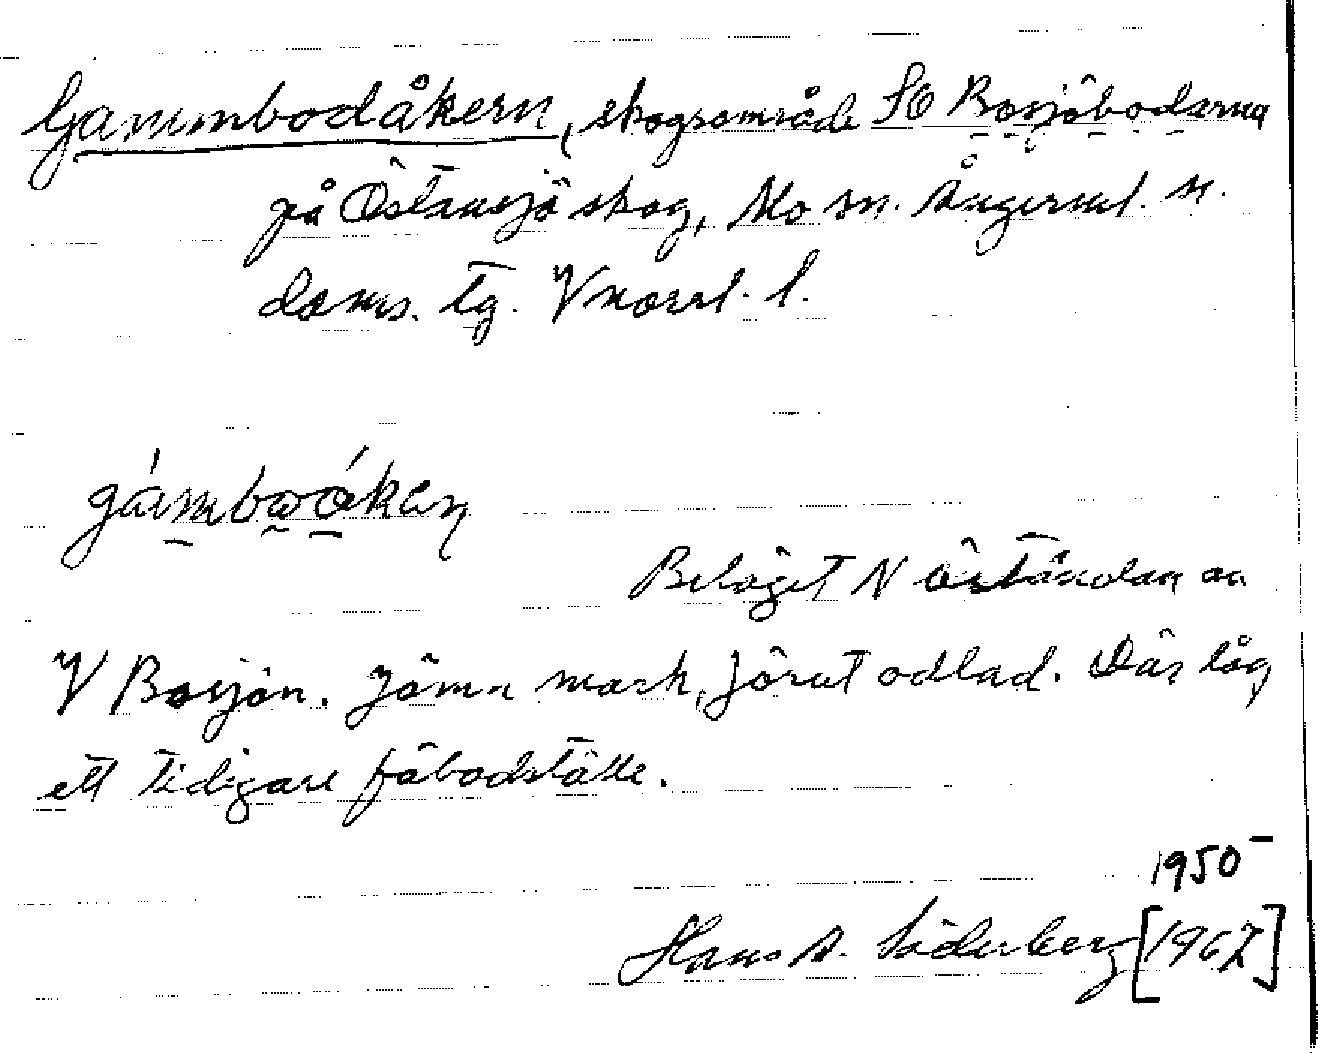 Gammbodåkern, skogsområde SO Bosjöbodarna
på Östansjö skog, Mo sn. Ångerml. n.
doms. tg. Vnorrl. l.
gámbωåkeɳ
Beläget N öständan av
V Bosjön. Jämn mark, förut odlad. Där låg
ett tidigare fäbodställe.
1950-
Hans A. Söderberg [1967]